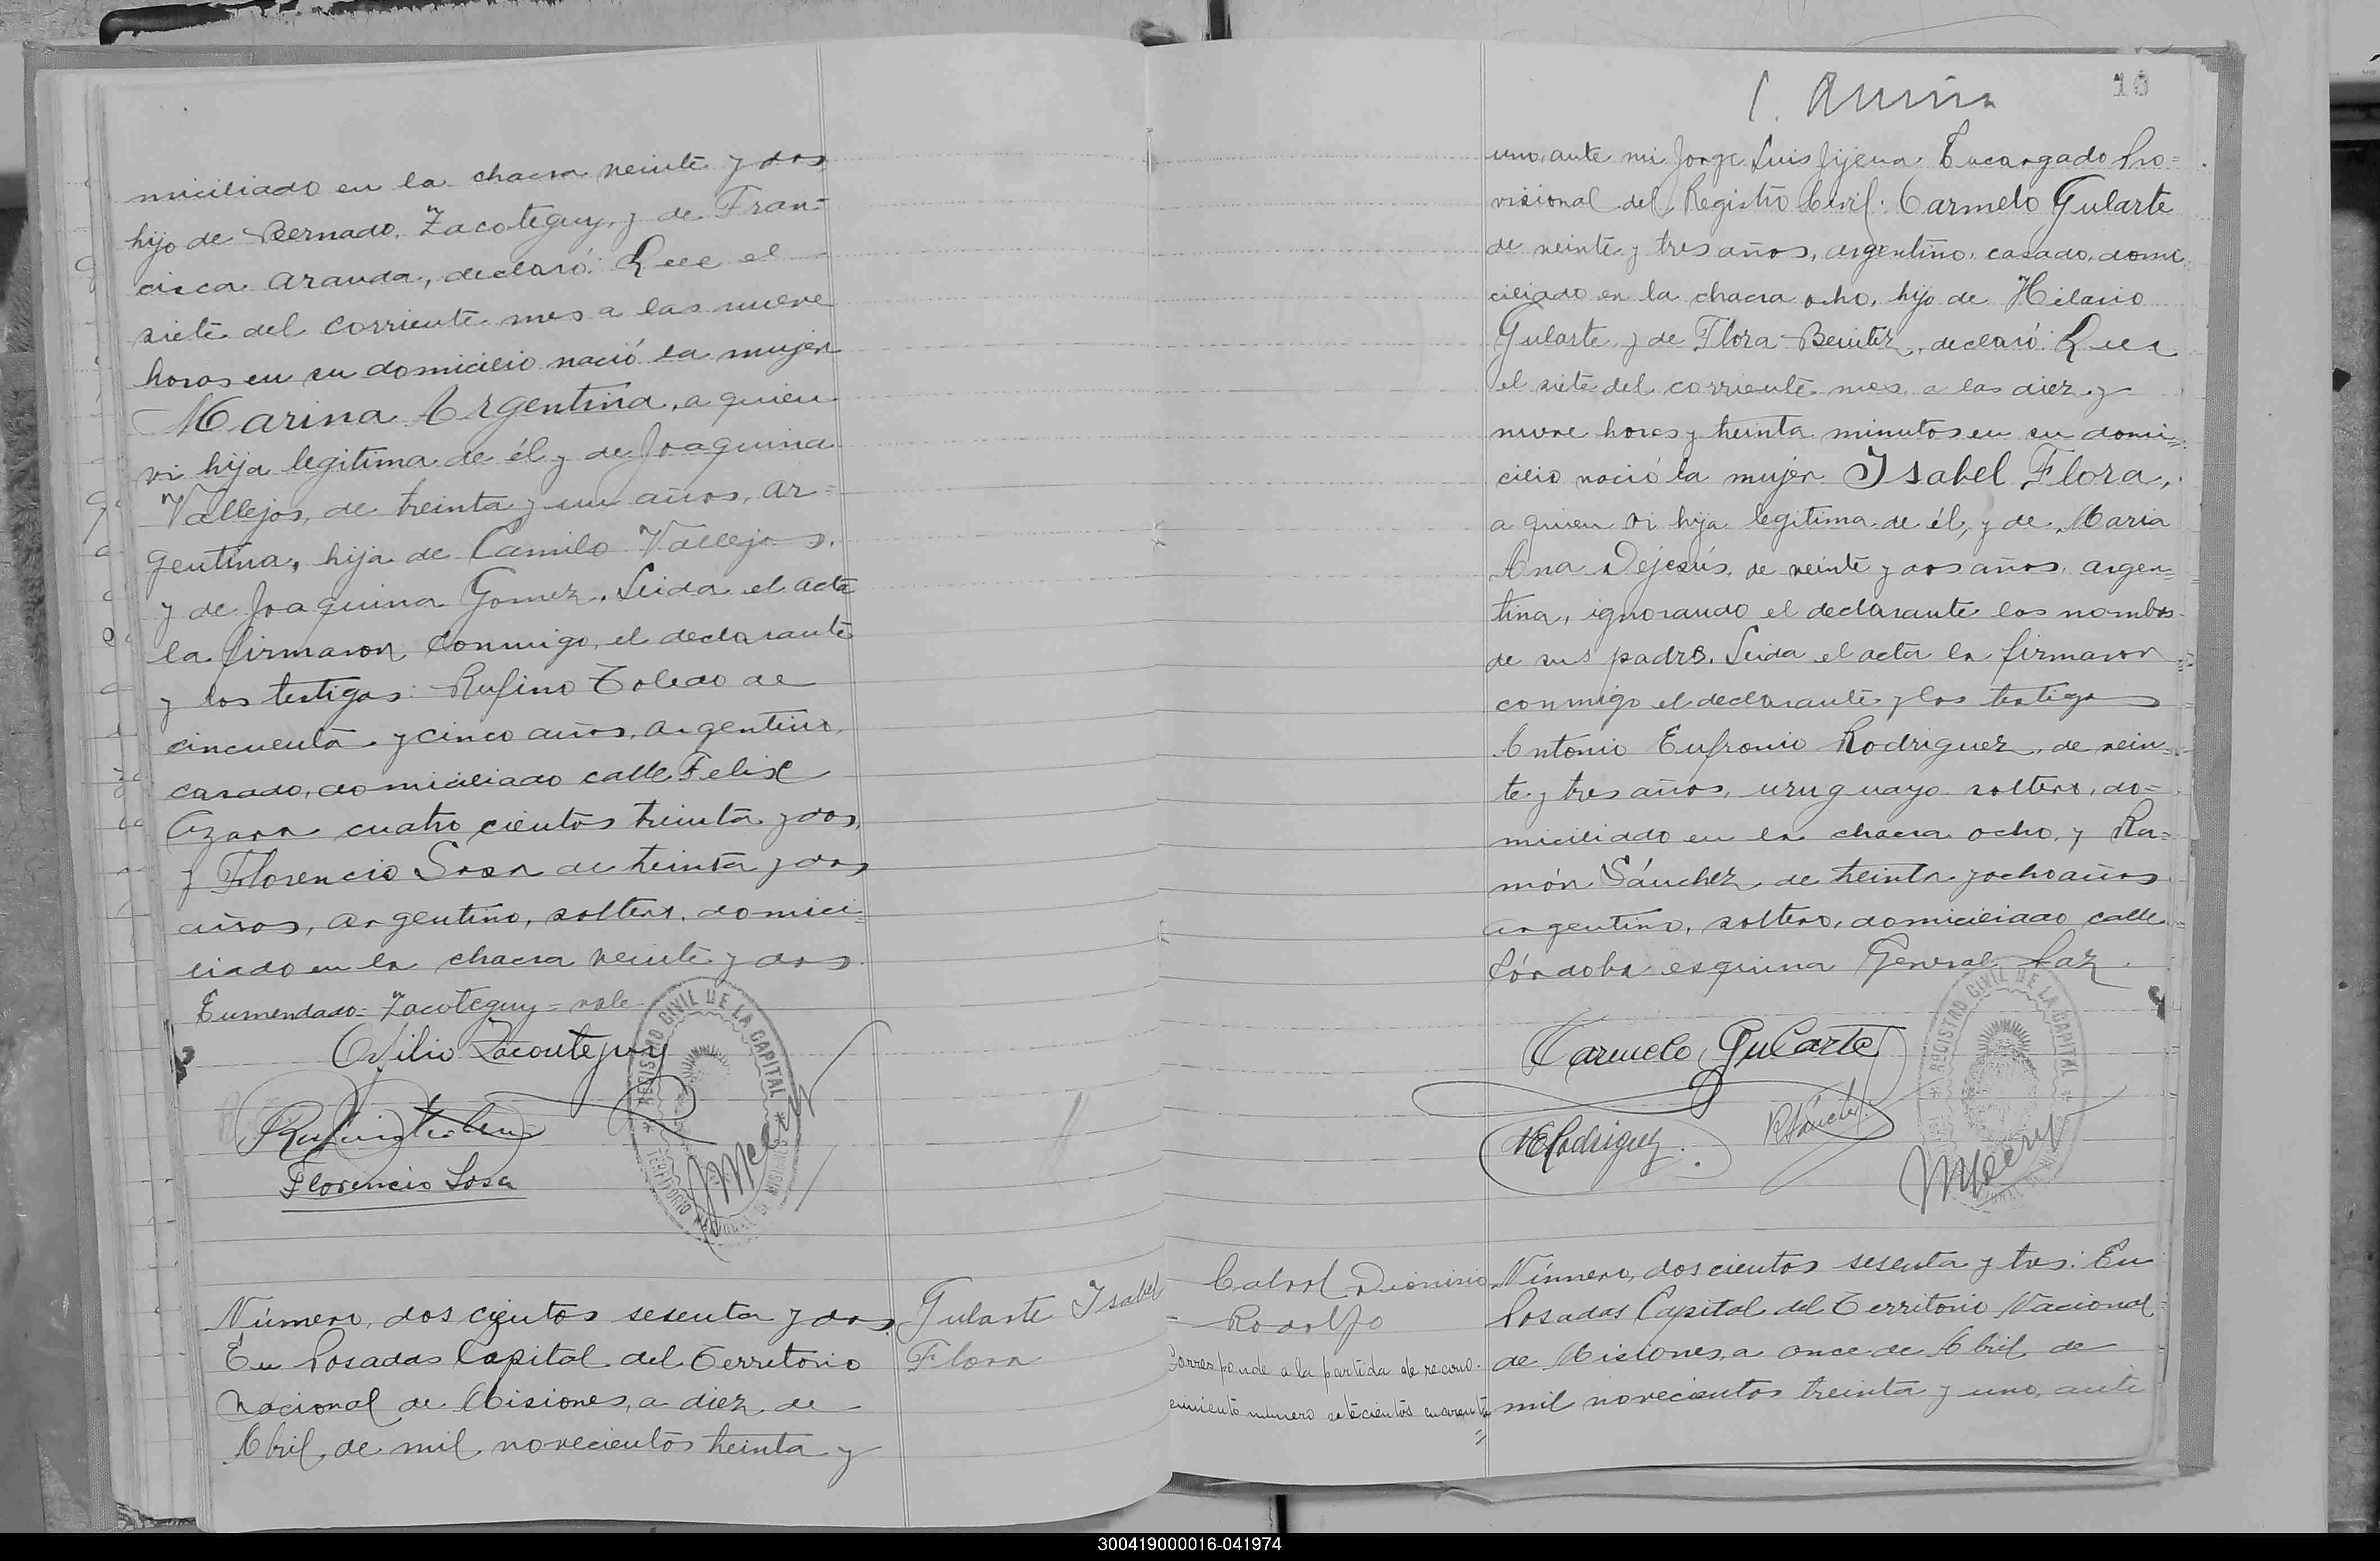 miciliado en la chacra veinte y dos,
hijo de Bernado Zacoteguy, y de Fran=
cisca Aranda, declaró: Que el
siete del corriente mes a las nueve
horas en su domicilio nació la mujer
Marina Argentina, a quien
vi hija legitima de él y de Joaquina
Vallejos, de treinta y un años, ar=
gentina, hija de Camilo Vallejos,
y de Joaquina Gomez. Leida el acta
la firmaron conmigo, el declarante
y los testigos: Rufino Toledo de
cincuenta y cinco años, argentino,
casado, domiciliado calle Felix
Azara cuatro cientos treinta y dos,
y Florencio Sosa de treinta y dos
años, argentino, soltero, domici=
liado en la chacra veinte y dos
Enmendado = Zacoteguy = vale
Zacouteguy
Florencio Sosa
REGISTRO CIVIL DE LA CAPITAL
TERRITORIO NACIONAL DE MISIONES
Número, dos cientos sesenta y dos
En Posadas Capital del Territorio
Nacional de Misiones, a diez de
Abril, de mil novecientos treinta y
Gularte Isabel
Flora
10
uno, ante mi Jorge Luis Jijena Encargado Pro=
visional del Registro Civil: Carmelo Gularte
de veinte y tres años, argentino, casado, domi
ciliado en la chacra ocho, hijo de Hilario
Gularte, y de Flora Benitez, declaró: Que
el siete del corriente mes, a las diez y
nueve horas y treinta minutos en su domi=
cilio nació la mujer Isabel Flora,
a quien vi hija legitima de él, y de Maria
Ana Dejesús, de veinte y dos años, argen=
tina, ignorando el declarante los nombres
de sus padres. Leida el acta la firmaron
conmigo el declarante y los testigos
Antonio Eufronio Rodriguez, de vein=
te y tres años, uruguayo soltero, do=
miciliado en la chacra ocho, y Ra=
món Sánchez, de treinta y ocho años
argentino, soltero, domiciliado calle
Córdoba esquina General Paz
Carmelo Gularte
AERodriguez
RSánchez
REGISTRO CIVIL DE LA CAPITAL
Cabral Dionisio
Rodolfo
Corresponde a la partida de recono-
cimiento número setecientos cuarenta
Número, doscientos sesenta y tres: En
Posadas Capital del Territorio Nacional
de Misiones, a once de Abril de
mil novecientos treinta y uno, ante
300419000016-041974